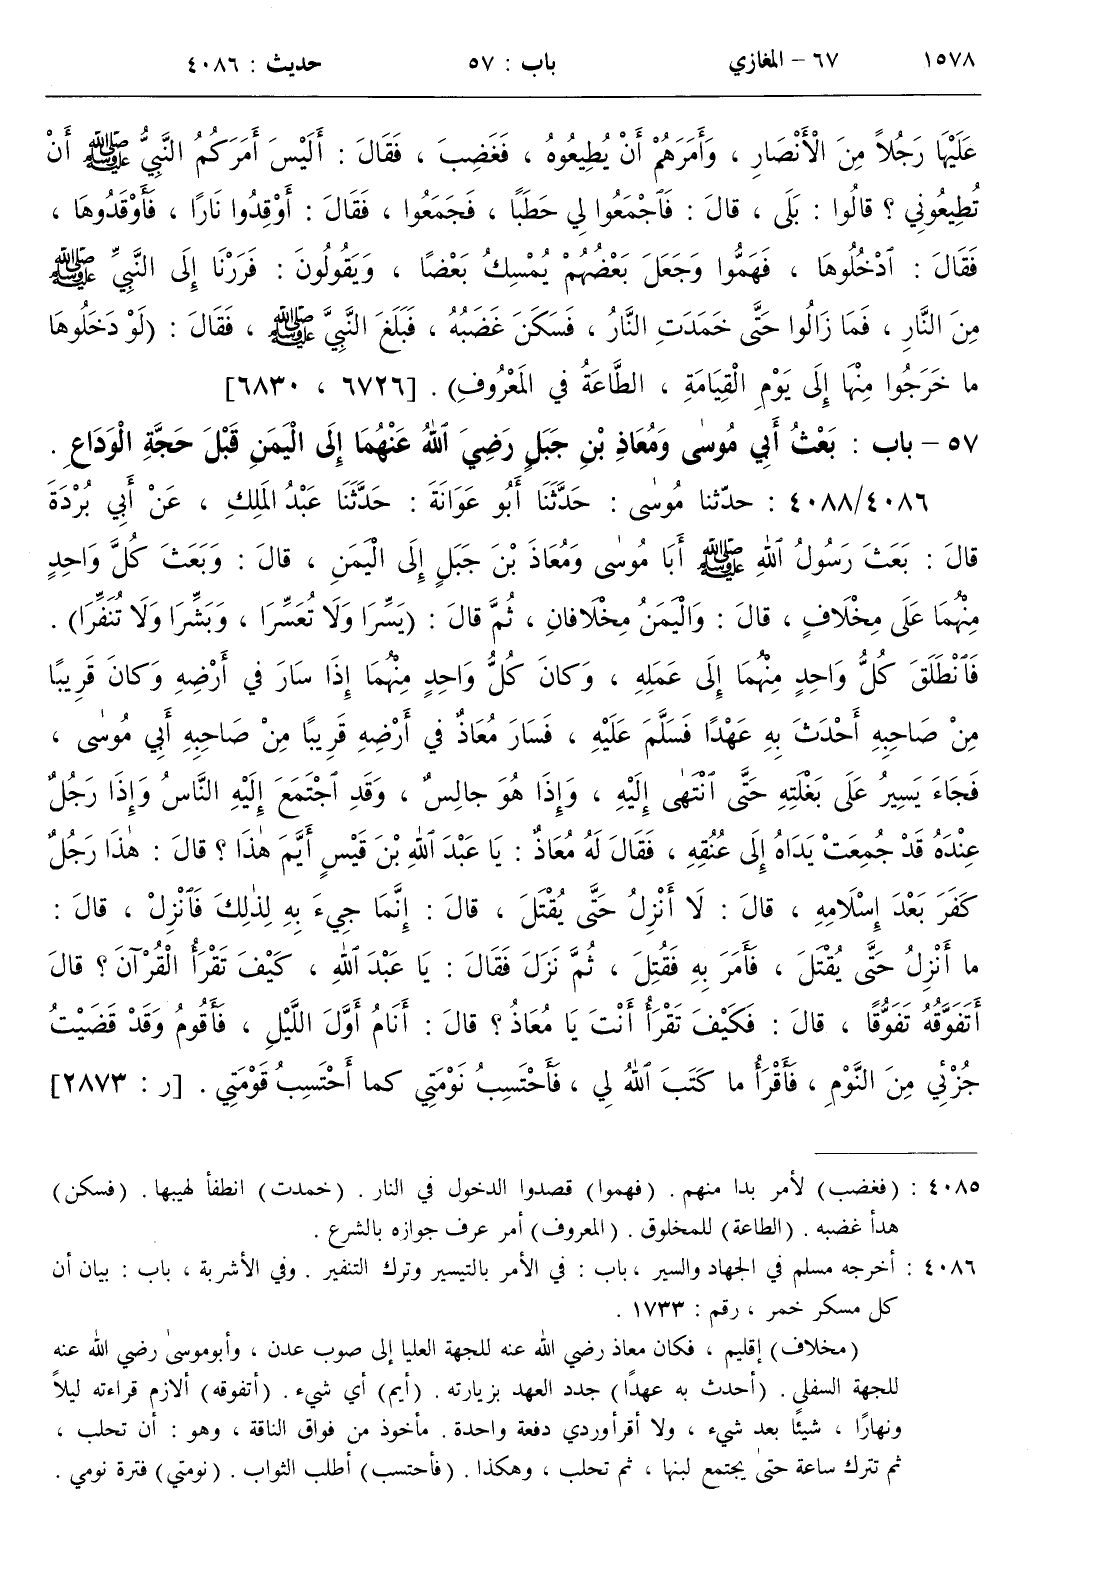 ١٥٧٨ ٦٧ – المغازي باب : ٥٧ حديث : ٤٠٨٦
عَلَيْهَا رَجُلاً مِنَ الْأَنْصَارِ ، وَأَمَرَهُمْ أَنْ يُطِيعُوهُ ، فَغَضِبَ ، فَقَالَ : أَلَيْسَ أَمَرَكُمُ النَّبِيُّ ﷺ أَنْ
تُطِيعُونِي ؟ قالُوا : بَلَى ، قالَ : فَٱجْمَعُوا لِي حَطَبًا ، فَجَمَعُوا ، فَقَالَ : أَوْقِدُوا نَارًا ، فَأَوْقَدُوهَا ،
فَقَالَ : ٱدْخُلُوهَا ، فَهَمُّوا وَجَعَلَ بَعْضُهُمْ يُمْسِكُ بَعْضًا ، وَيَقُولُونَ : فَرَرْنَا إِلَى النَّبِيِّ ﷺ
مِنَ النَّارِ ، فَمَا زَالُوا حَتَّى خَمَدَتِ النَّارُ ، فَسَكَنَ غَضَبُهُ ، فَبَلَغَ النَّبِيَّ ﷺ ، فَقَالَ : (لَوْ دَخَلُوهَا
ما خَرَجُوا مِنْهَا إِلَى يَوْمِ الْقِيَامَةِ ، الطَّاعَةُ في المَعْرُوفِ) . [٦٧٢٦ ، ٦٨٣٠]
٥٧ – باب : بَعْثُ أَبِي مُوسٰى وَمُعَاذِ بْنِ جَبَلٍ رَضِيَ ٱللهُ عَنْهُمَا إِلَى الْيَمَنِ قَبْلَ حَجَّةِ الْوَدَاعِ .
٤٠٨٨/٤٠٨٦ : حدّثنا مُوسٰى : حَدَّثَنَا أَبُو عَوَانَةَ : حَدَّثَنَا عَبْدُ المَلِكِ ، عَنْ أَبِي بُرْدَةَ
قالَ : بَعَثَ رَسُولُ ٱللهِ ﷺ أَبَا مُوسٰى وَمُعَاذَ بْنَ جَبَلٍ إِلَى الْيَمَنِ ، قالَ : وَبَعَثَ كُلَّ وَاحِدٍ
مِنْهُمَا عَلَى مِخْلَافٍ ، قالَ : وَالْيَمَنُ مِخْلَافانِ ، ثُمَّ قالَ : (يَسِّرَا وَلَا تُعَسِّرَا ، وَبَشِّرَا وَلَا تُنَفِّرَا) .
فَٱنْطَلَقَ كُلُّ وَاحِدٍ مِنْهُمَا إِلَى عَمَلِهِ ، وَكانَ كُلُّ وَاحِدٍ مِنْهُمَا إِذَا سَارَ في أَرْضِهِ وَكانَ قَرِيبًا
مِنْ صَاحِبِهِ أَحْدَثَ بِهِ عَهْدًا فَسَلَّمَ عَلَيْهِ ، فَسَارَ مُعَاذٌ في أَرْضِهِ قَرِيبًا مِنْ صَاحِبِهِ أَبِي مُوسٰى ،
فَجَاءَ يَسِيرُ عَلَى بَغْلَتِهِ حَتَّى ٱنْتَهٰى إِلَيْهِ ، وَإِذَا هُوَ جالِسٌ ، وَقَدِ ٱجْتَمَعَ إِلَيْهِ النَّاسُ وَإِذَا رَجُلٌ
عِنْدَهُ قَدْ جُمِعَتْ يَدَاهُ إِلَى عُنُقِهِ ، فَقَالَ لَهُ مُعَاذٌ : يَا عَبْدَ ٱللهِ بْنَ قَيْسٍ أَيَّمَ هٰذَا ؟ قالَ : هٰذَا رَجُلٌ
كَفَرَ بَعْدَ إِسْلَامِهِ ، قالَ : لَا أَنْزِلُ حَتَّى يُقْتَلَ ، قالَ : إِنَّمَا جِيءَ بِهِ لِذٰلِكَ فَٱنْزِلْ ، قالَ :
ما أَنْزِلُ حَتَّى يُقْتَلَ ، فَأَمَرَ بِهِ فَقُتِلَ ، ثُمَّ نَزَلَ فَقَالَ : يَا عَبْدَ ٱللهِ ، كَيْفَ تَقْرَأُ الْقُرْآنَ ؟ قالَ
أَتَفَوَّقُهُ تَفَوُّقًا ، قالَ : فَكَيْفَ تَقْرَأُ أَنْتَ يَا مُعَاذُ ؟ قالَ : أَنَامُ أَوَّلَ اللَّيْلِ ، فَأَقُومُ وَقَدْ قَضَيْتُ
جُزْئِي مِنَ النَّوْمِ ، فَأَقْرَأُ ما كَتَبَ ٱللهُ لِي ، فَأَحْتَسِبُ نَوْمَتِي كما أَحْتَسِبُ قَوْمَتِي . [ر : ٢٨٧٣]
٤٠٨٥ : (فغضب) لأمر بدا منهم . (فهموا) قصدوا الدخول في النار . (خمدت) انطفأ لهيبها . (فسكن)
هدأ غضبه . (الطاعة) للمخلوق . (المعروف) أمر عرف جوازه بالشرع .
٤٠٨٦ : أخرجه مسلم في الجهاد والسير ، باب : في الأمر بالتيسير وترك التنفير . وفي الأشربة ، باب : بيان أن
كل مسكر خمر ، رقم : ١٧٣٣ .
(مخلاف) إقليم ، فكان معاذ رضي الله عنه للجهة العليا إلى صوب عدن ، وأبوموسىٰ رضي الله عنه
للجهة السفلى . (أحدث به عهدًا) جدد العهد بزيارته . (أيم) أي شيء . (أتفوقه) ألازم قراءته ليلاً
ونهارًا ، شيئًا بعد شيء ، ولا أقرأوردي دفعة واحدة . مأخوذ من فواق الناقة ، وهو : أن تحلب ،
ثم تترك ساعة حتىٰ يجتمع لبنها ، ثم تحلب ، وهكذا . (فأحتسب) أطلب الثواب . (نومتي) فترة نومي .